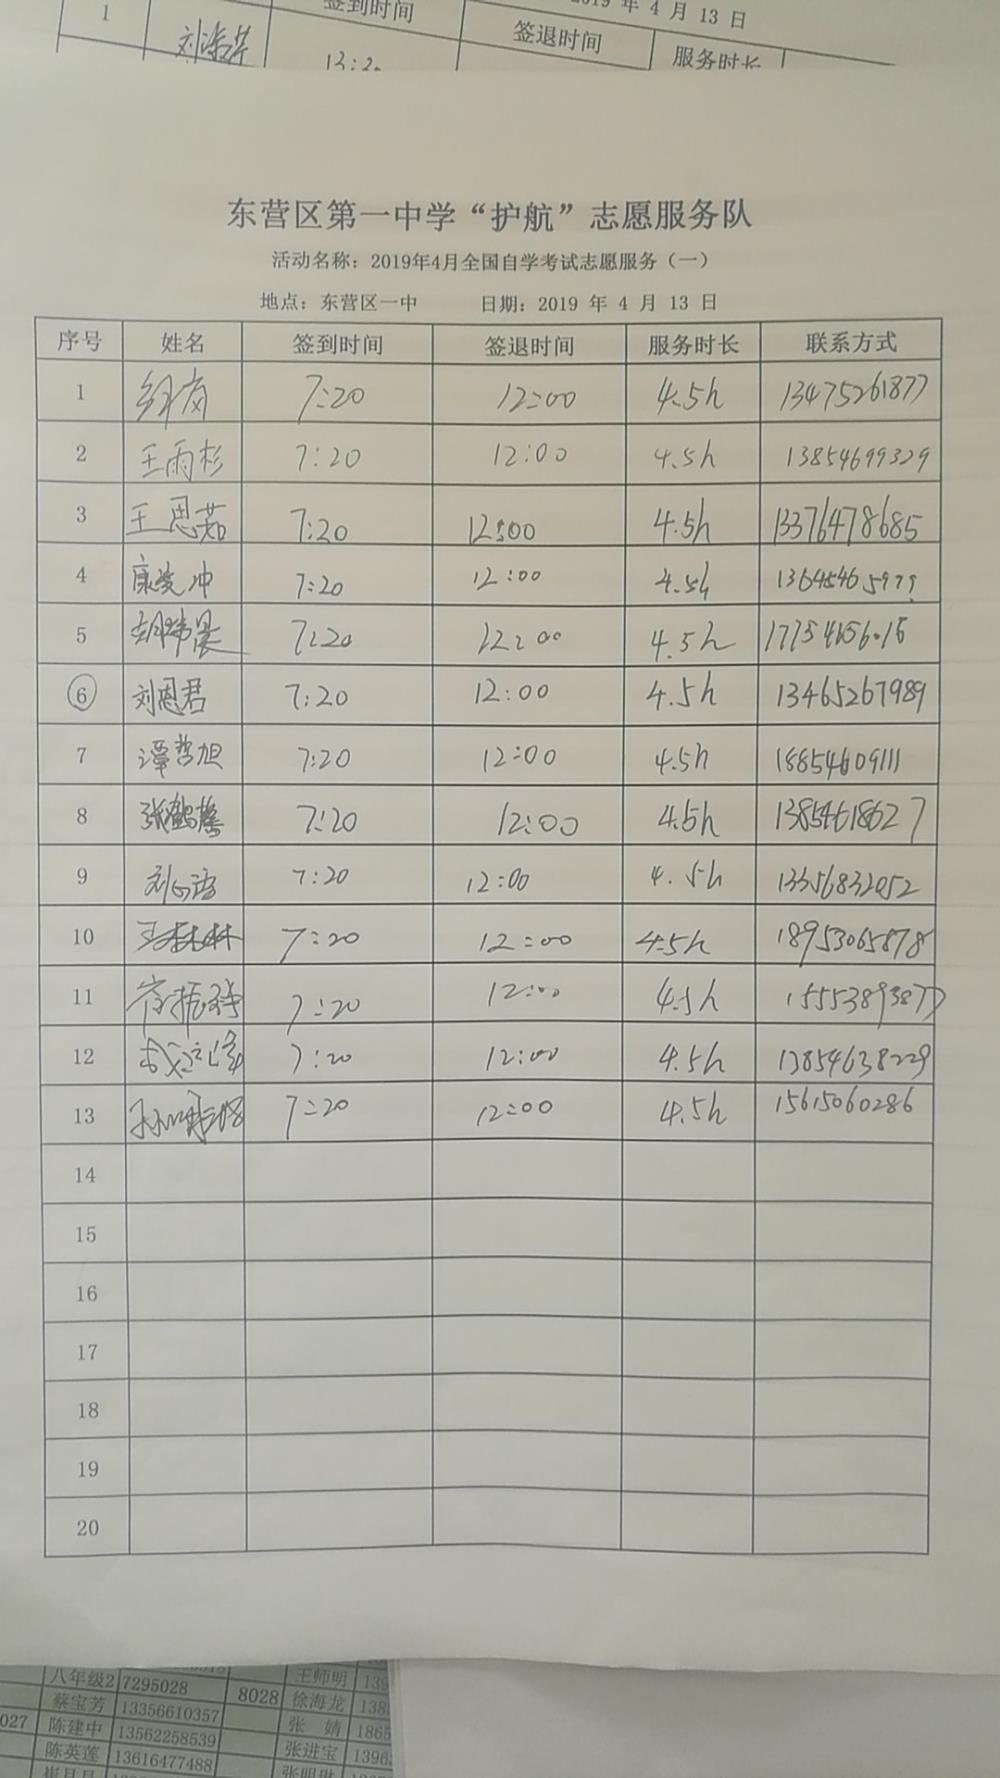 1 签到时间 2019 年 4 月 13 日
13:20 签退时间 服务时长
东营区第一中学“护航”志愿服务队
活动名称：2019年4月全国自学考试志愿服务（一）
地点：东营区一中 日期：2019 年 4 月 13 日
序号 姓名 签到时间 签退时间 服务时长 联系方式
1 7:20 12:00 4.5h 13475261877
2 王雨杉 7:20 12:00 4.5h 13854699329
3 王思茹 7:20 12:00 4.5h 13376478685
4 康凌冲 7:20 12:00 4.5h
5 7:20 12:00 4.5h
6 刘恩君 7:20 12:00 4.5h 13465267989
7 谭哲旭 7:20 12:00 4.5h 18854609111
8 张鹤馨 7:20 12:00 4.5h 13854618627
9 7:20 12:00 4.5h 13356832052
10 7:20 12:00 4.5h 18953065878
11 7:20 12:00 4.5h 15553893877
12 7:20 12:00 4.5h 13854638229
13 7:20 12:00 4.5h 15615060286
14
15
16
17
18
19
20
八年级2 7295028 王师明 139
蔡宝芳 13356610357 8028 徐海龙 138
027 陈建中 13562258539 张 婧 1865
陈英莲 13616477488 张进宝 1396